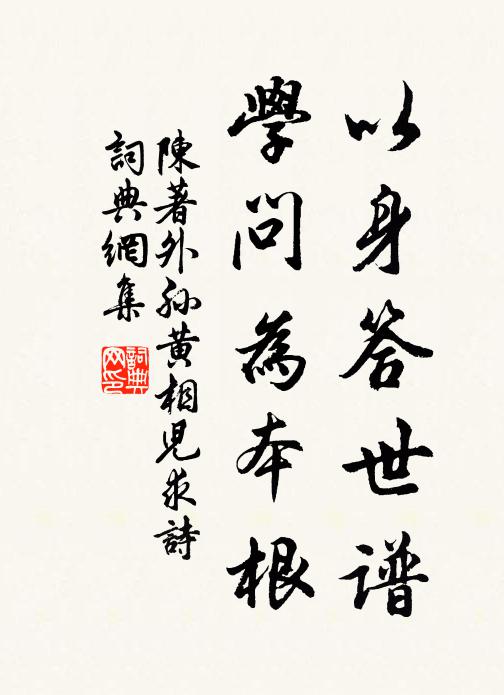 以身答世谱
學問為本根
陳著外孙黄相児求詩
詞典網集
詞典网印